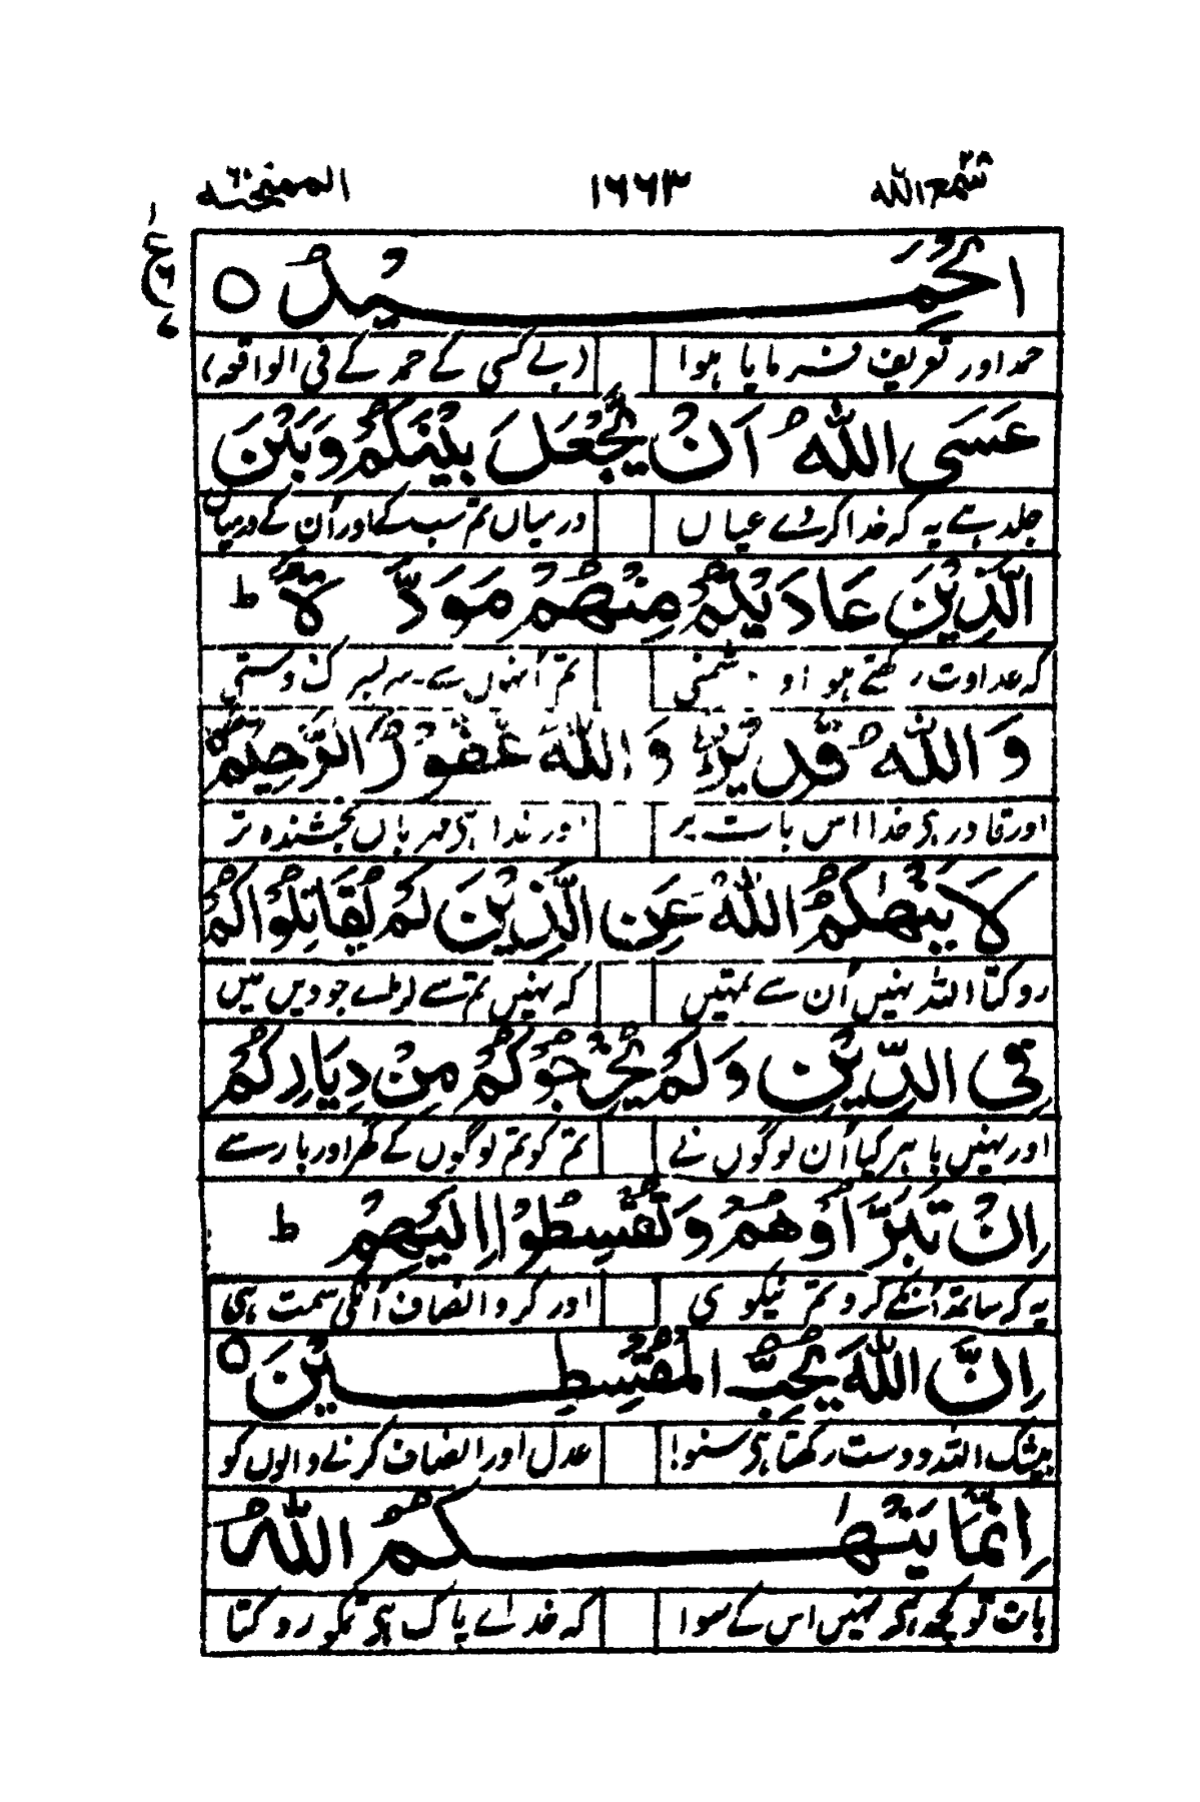 قد سمع اللہ ٢٨ ١٦٦٣ الممتحنة ٦٠
ع
الْحَمِيْدُ ○
حمد اور تعریف فرمایا ہوا (بے کسی کے حمد کے فی الواقعہ)
عَسَى اللّٰهُ اَنْ يَّجْعَلَ بَيْنَكُمْ وَبَيْنَ
جلد ہے یہ کہ خدا کردے عیاں درمیاں تم سب کے اور اُن کے درمیاں
الَّذِيْنَ عَادَيْتُمْ مِنْهُمْ مَوَدَّةً ط
کہ عداوت رکھتے ہو او دشمنی تم اُنہوں سے دوستی
وَاللّٰهُ قَدِيْرٌ وَاللّٰهُ غَفُوْرٌ الرَّحِيْمٌ ○
اور قادر ہی خدا اس بات پر اور خدا ہی مہرباں بخشندہ تر
لَا يَنْهٰىكُمُ اللّٰهُ عَنِ الَّذِيْنَ لَمْ يُقَاتِلُوْاكُمْ
روکتا اللہ نہیں اُن سے تمہیں کہ نہیں تم سے لڑے جو دیں میں
فِى الدِّيْنِ وَلَمْ يُخْرِجُوْكُمْ مِنْ دِيَارِكُمْ
اور نہیں باہر کیا اُن لوگوں نے تم کو تم لوگوں کے گھر اور بار سے
اِنْ تَبَرَّاُوْهُمْ وَتُقْسِطُوْا اِلَيْهِمْ ط
یہ کہ ساتھ اُنکے کرو تم نیکوی اور کرو انصاف اُنکی سمت ہی
اِنَّ اللّٰهَ يُحِبُّ الْمُقْسِطِيْنَ ○
بیشک اللہ دوست رکھتا ہی سنو! عدل اور انصاف کرنے والوں کو
اِنَّمَا يَنْهٰىكُمُ اللّٰهُ
بات تو کچھ ہیگی نہیں اس کے سوا کہ خداے پاک ہی تمکو روکتا